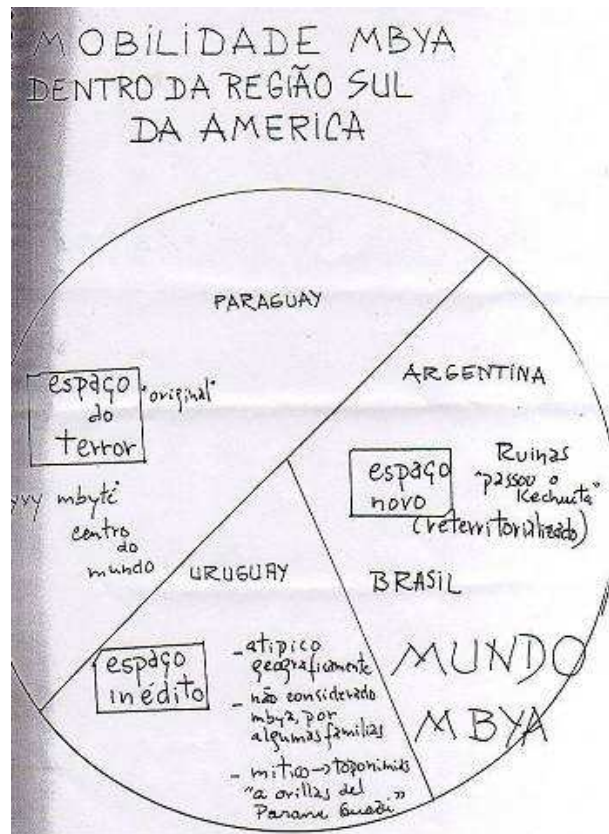 MOBILIDADE MBYA
DENTRO DA REGIÃO SUL
DA AMERICA
PARAGUAY
espaço
do
terror
"original"
yvy mbyté
centro
do
mundo
ARGENTINA
espaço
novo
Ruinas
"passou o
Kechuita"
(reterritorializado)
BRASIL
MUNDO
MBYA
URUGUAY
espaço
inédito
-atipico
geograficamente
- não considerado
mbya, por
algumas familias
- mitico→toponimias
"a orillas del
Parana Guazú"